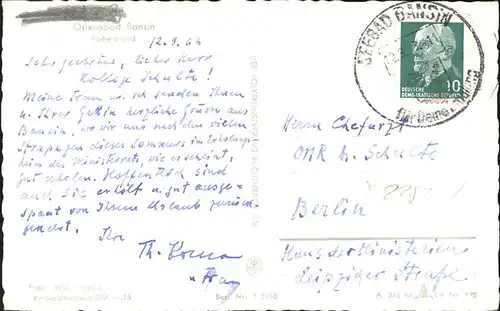 Ostseebad Bansin
12.9.64
Sehr geehrter, lieber Herr
Kollege Schulte!
Meine Frau u. ich senden Ihnen
u. Ihrer Gattin herzliche Grüsse aus
Bansin, wo wir uns nach den vielen
Strapazen dieses Sommers im Erholungs-
heim des Ministerrats, wie es scheint,
gut erholen. Hoffentlich sind
auch Sie erholt u. gut ausge-
spannt von Ihrem Urlaub zurück-
gekehrt. Ihr
Th.
u. Frau
SEEBAD BANSIN
DEUTSCHE
DEMOKRATISCHE REPUBLIK
10
für Deine
Herrn Chefarzt
OMR Dr. Schulte
Berlin
Haus der Ministerien
Leipziger Straße